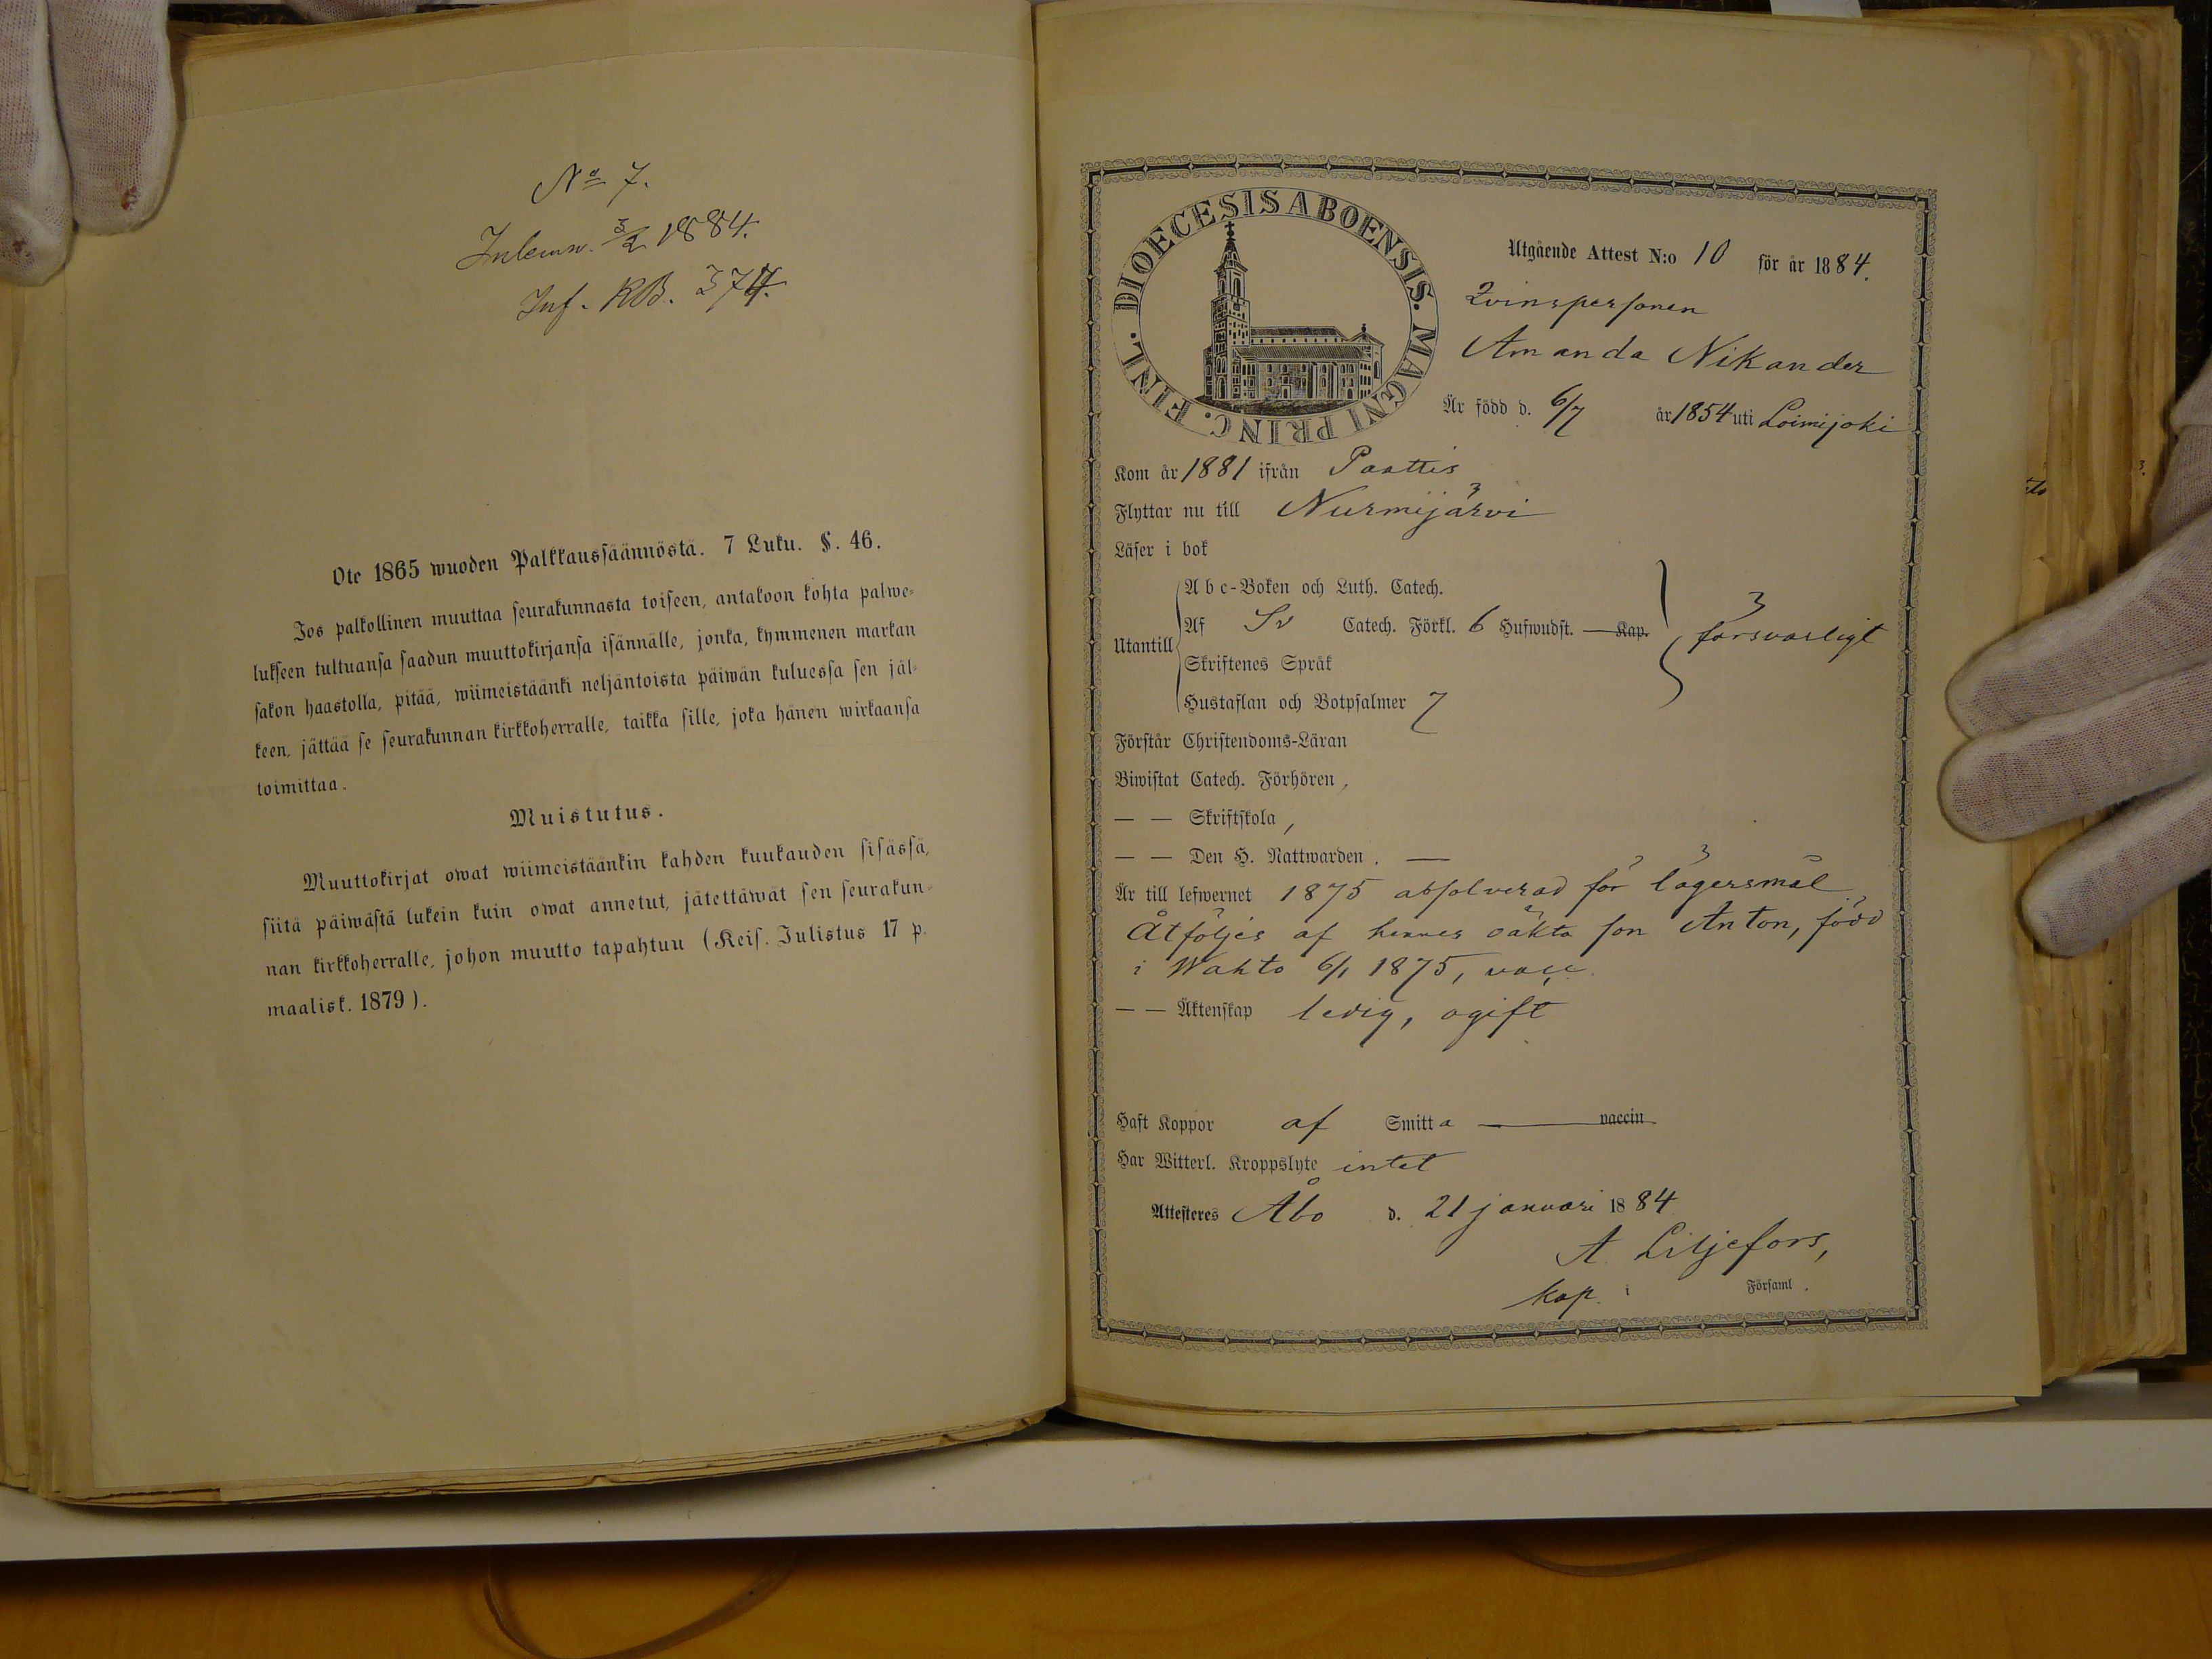 No 7.
Inlemn. 3/2 1884.
Inf. KB. 374.
Ote 1865 wuoden Palkkaussäännöstä. 7 Luku. §. 46.
Jos palkollinen muuttaa seurakunnasta toiseen, antakoon kohta palwe-
lukseen tultuansa saadun muuttokirjansa isännälle, jonka, kymmenen markan
sakon haastolla, pitää, wiimeistäänki neljäntoista päiwän kuluessa sen jäl-
keen, jättää se seurakunnan kirkkoherralle, taikka sille, joka hänen wirkaansa
toimittaa.
Muistutus.
Muuttokirjat owat wiimeistäänkin kahden kuukauden sisässä,
siitä päiwästä lukein kuin owat annetut, jätettäwät sen seurakun-
nan kirkkoherralle, johon muutto tapahtuu (Keis. Julistus 17 p.
maalisk. 1879).
DIOECESIS ABOENSIS. MAGNI PRINC. FINL.
Utgående Attest N:o 10 för år 1884.
Qvinspersonen
Amanda Nikander
Är född d. 6/7 år 1854 uti Loimijoki
Kom år 1881 ifrån Paattis
Flyttar nu till Nurmijärvi
Läser i bok
Abc-Boken och Luth. Catech.
Utantill Af Sv Catech. Förkl. 6 Hufwudst. — Kap. försvarligt
Skriftenes Språk
Hustaflan och Botpsalmer 7
Förstår Christendoms-Läran
Biwistat Catech. Förhören,
— — Skriftskola,
— — Den H. Nattwarden. —
Är till lefwernet 1875 absolverad för lägersmål
Åtföljes af hennes oäkta son Anton, född
i Wahto 6/1 1875, vacc.
— — Äktenskap ledig, ogift
Haft Koppor af Smitta — vaccin
Har Witterl. Kroppslyte intet
Attesteres Åbo d. 21 januari 1884
A. Liljefors,
kap. i Församl.